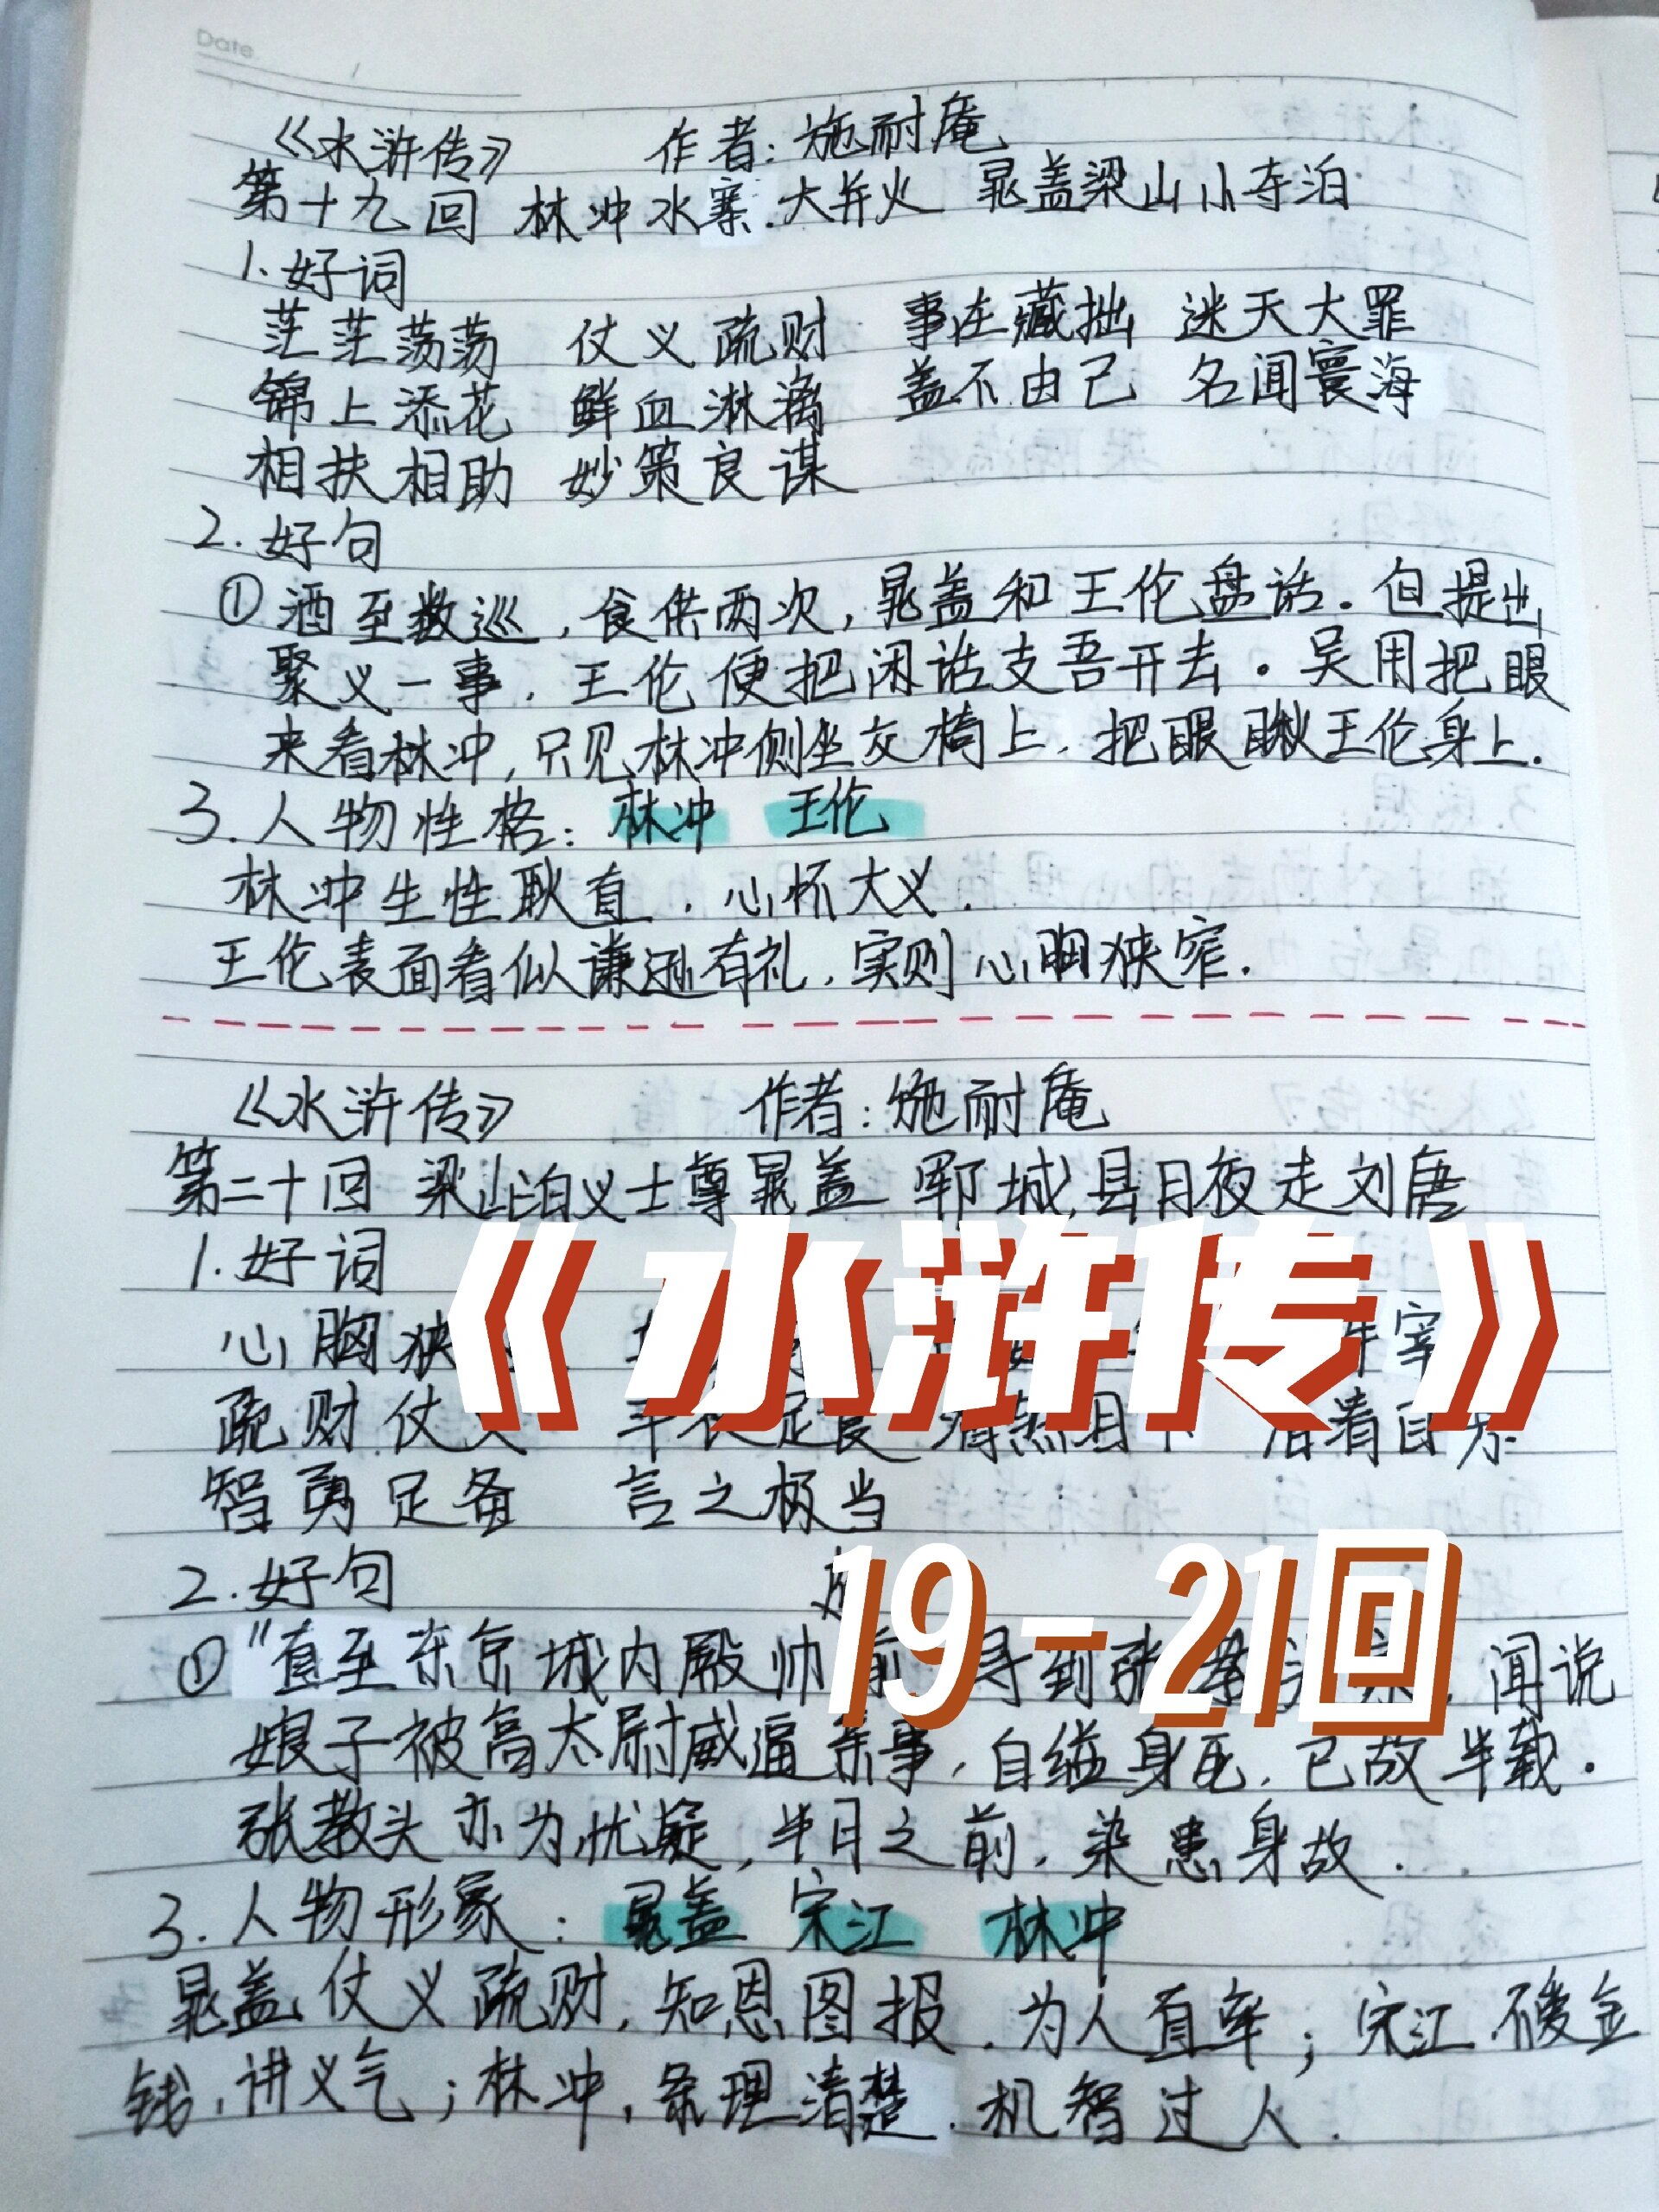 Date
《水浒传》 作者:施耐庵
第十九回 林冲水寨.大并火 晁盖梁山小夺泊
1.好词
茫茫荡荡 仗义疏财 事在藏拙 迷天大罪
锦上添花 鲜血淋漓 盖不由己 名闻寰海
相扶相助 妙策良谋
2.好句
①酒至数巡,食供两次,晁盖和王伦盘话.但提出
聚义一事,王伦便把闲话支吾开去.吴用把眼
来看林冲,只见林冲侧坐交椅上,把眼瞅王伦身上.
3.人物性格:林冲 王伦
林冲生性耿直,心怀大义.
王伦表面看似谦逊有礼,实则心胸狭窄.
《水浒传》 作者:施耐庵
第二十回 梁山泊义士尊晁盖 郓城县月夜走刘唐
1.好词
《水浒传》
心胸狭
疏财仗义 丰衣足食
智勇足备 言之极当
2.好句
19-21回
①"直至东京城内殿帅 前 寻到张教头家,闻说
娘子被高太尉威逼亲事,自缢身死,已故半载.
张教头亦为忧疑,半月之前,染患身故.
3.人物形象:晁盖 宋江 林冲
晁盖仗义疏财,知恩图报,为人直率;宋江不爱金
钱,讲义气;林冲,条理清楚,机智过人.